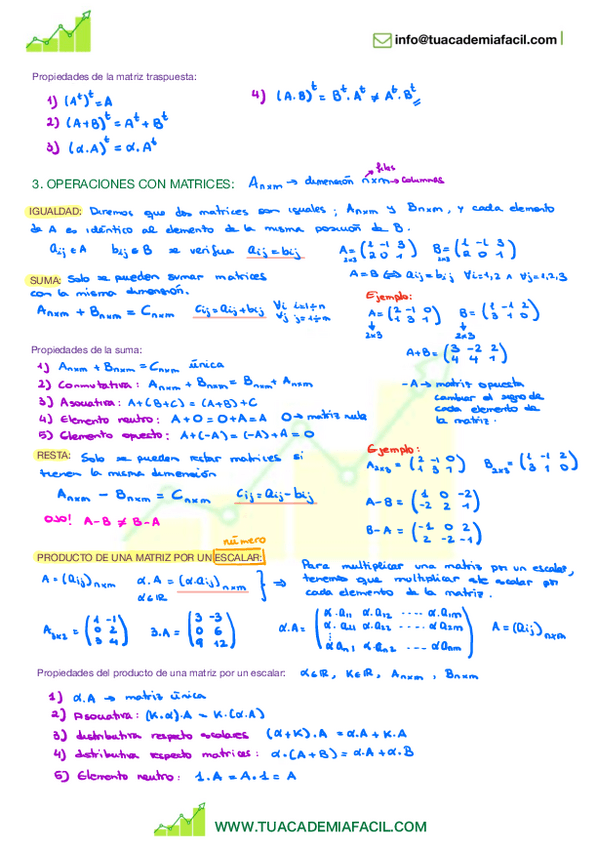 info@tuacademiafacil.com
Propiedades de la matriz traspuesta:
1) (Aᵗ)ᵗ = A
4) (A.B)ᵗ = Bᵗ.Aᵗ ≠ Aᵗ.Bᵗ
2) (A+B)ᵗ = Aᵗ + Bᵗ
3) (α.A)ᵗ = α.Aᵗ
3. OPERACIONES CON MATRICES: Anxm → dimensión nxm → columnas
filas
IGUALDAD: Diremos que dos matrices son iguales; Anxm y Bnxm, y cada elemento
de A es idéntico al elemento de la misma posición de B.
aij ∈ A bij ∈ B se verifica aij = bij
A = (1 -1 3
2 0 1) 2x3 B = (1 -1 3
2 0 1) 2x3
A = B ⟺ aij = bij ∀i=1,2 ∧ ∀j=1,2,3
SUMA: Solo se pueden sumar matrices
con la misma dimensión.
Anxm + Bnxm = Cnxm cij = aij + bij ∀i i=1÷n
∀j j=1÷m
Ejemplo:
A = (2 -1 0
1 3 1) B = (1 -1 2
3 1 0)
2x3 2x3
A+B = (3 -2 2
4 4 1)
Propiedades de la suma:
1) Anxm + Bnxm = Cnxm única
2) Conmutativa: Anxm + Bnxm = Bnxm + Anxm
3) Asociativa: A+(B+C) = (A+B)+C
4) Elemento neutro: A+0 = 0+A = A 0 → matriz nula
5) Elemento opuesto: A+(-A) = (-A)+A = 0
-A → matriz opuesta
cambiar el signo de
cada elemento de
la matriz.
RESTA: Solo se pueden restar matrices si
tienen la misma dimensión
Anxm - Bnxm = Cnxm cij = aij - bij
OJO! A-B ≠ B-A
Ejemplo:
A2x3 = (2 -1 0
1 3 1) B2x3 = (1 -1 2
3 1 0)
A-B = (1 0 -2
-2 2 1)
B-A = (-1 0 2
2 -2 -1)
número
PRODUCTO DE UNA MATRIZ POR UN ESCALAR:
A = (aij)nxm α.A = (α.aij)nxm } ⇒
α∈ℝ
Para multiplicar una matriz por un escalar,
tenemos que multiplicar ese escalar por
cada elemento de la matriz.
A3x2 = (1 -1
0 2
3 4) 3.A = (3 -3
0 6
9 12)
α.A = (α.a11 α.a12 ---- α.a1m
α.a21 α.a22 ---- α.a2m
⋮
α.an1 α.an2 --- α.anm) A = (aij)nxm
Propiedades del producto de una matriz por un escalar: α∈ℝ, K∈ℝ, Anxm, Bnxm
1) α.A → matriz única
2) Asociativa: (K.α).A = K.(α.A)
3) distributiva respecto escalares (α+K).A = α.A + K.A
4) distributiva respecto matrices: α.(A+B) = α.A + α.B
5) Elemento neutro: 1.A = A.1 = A
WWW.TUACADEMIAFACIL.COM